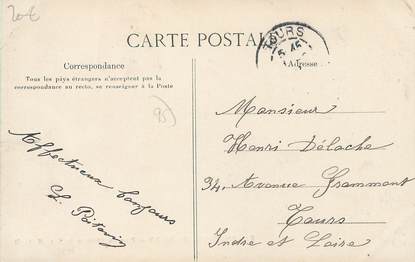 20€
CARTE POSTALE
TOURS
Correspondance
Adresse
Tous les pays étrangers n'acceptent pas la
correspondance au recto, se renseigner à la Poste
95
Monsieur
Henri Délache
94, Avenue Grammont
Tours
Indre et Loire
Affectueux bonjours
L. Poitevin